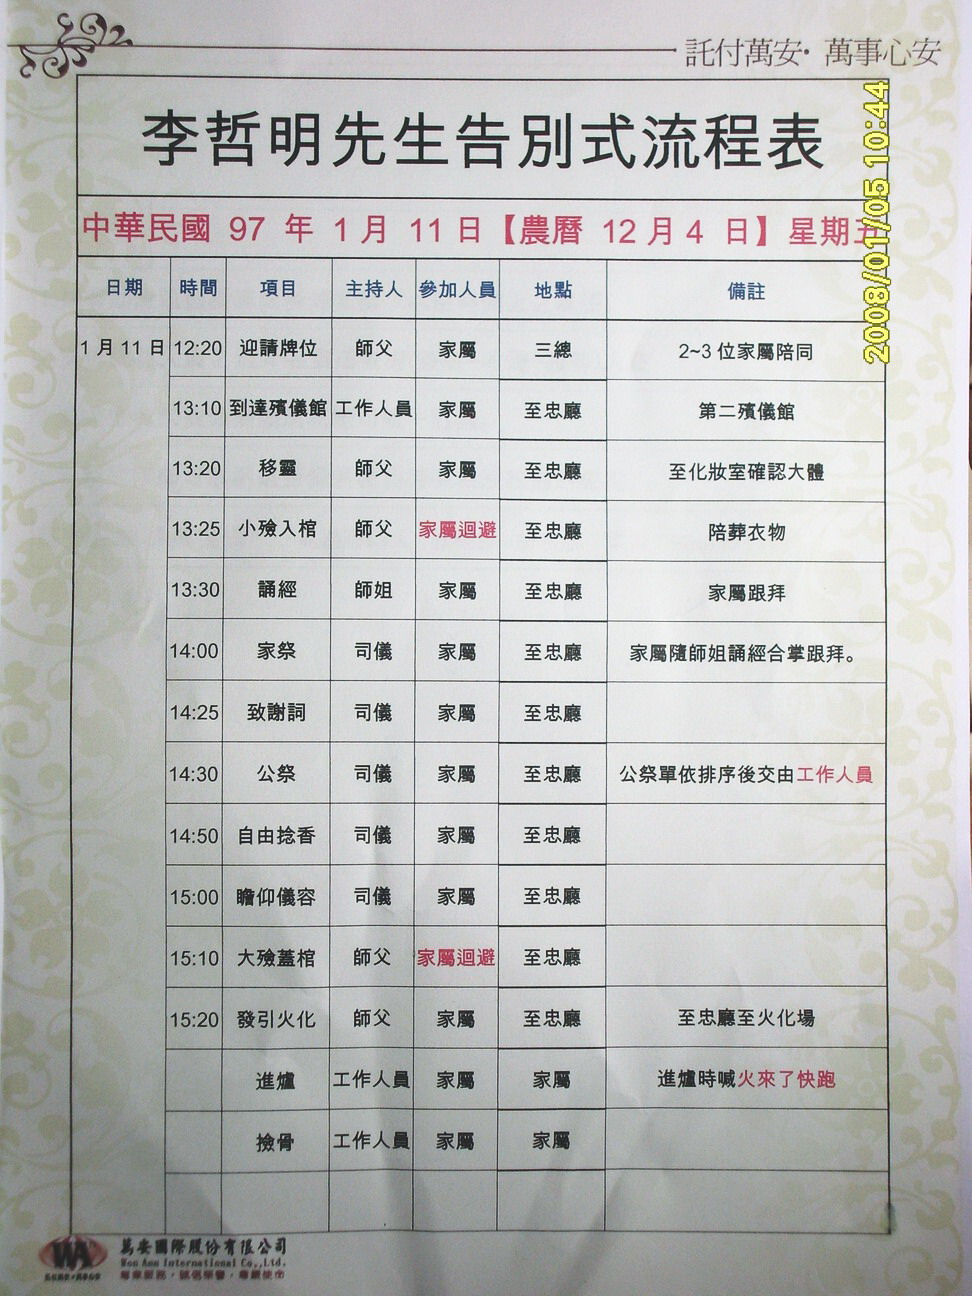 託付萬安・萬事心安
李哲明先生告別式流程表
中華民國 97 年 1 月 11 日【農曆 12 月 4 日】星期五
2008/01/05 10:44
日期 時間 項目 主持人 參加人員 地點 備註
1 月 11 日 12:20 迎請牌位 師父 家屬 三總 2~3 位家屬陪同
13:10 到達殯儀館 工作人員 家屬 至忠廳 第二殯儀館
13:20 移靈 師父 家屬 至忠廳 至化妝室確認大體
13:25 小殮入棺 師父 家屬迴避 至忠廳 陪葬衣物
13:30 誦經 師姐 家屬 至忠廳 家屬跟拜
14:00 家祭 司儀 家屬 至忠廳 家屬隨師姐誦經合掌跟拜。
14:25 致謝詞 司儀 家屬 至忠廳
14:30 公祭 司儀 家屬 至忠廳 公祭單依排序後交由工作人員
14:50 自由捻香 司儀 家屬 至忠廳
15:00 瞻仰儀容 司儀 家屬 至忠廳
15:10 大殮蓋棺 師父 家屬迴避 至忠廳
15:20 發引火化 師父 家屬 至忠廳 至忠廳至火化場
進爐 工作人員 家屬 家屬 進爐時喊火來了快跑
撿骨 工作人員 家屬 家屬
萬安國際股份有限公司
Wan Ann International Co.,Ltd.